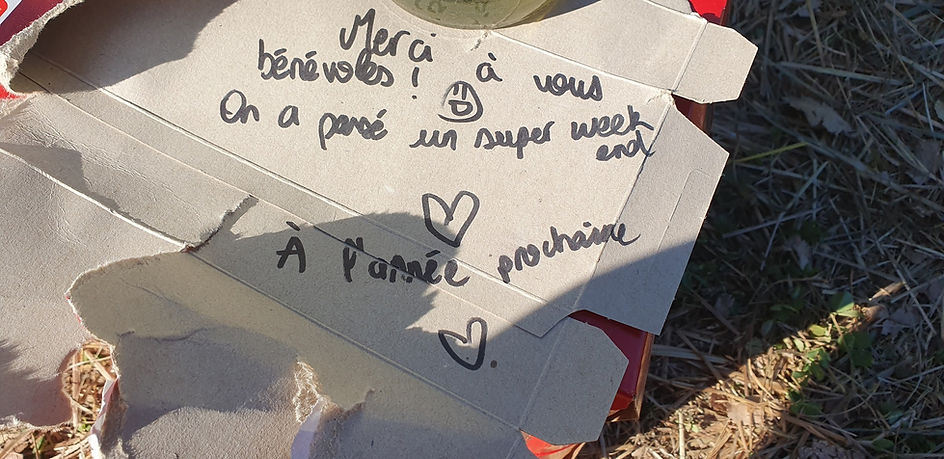 Merci à vous
bénévoles !
On a passé un super week
end
À l'année prochaine